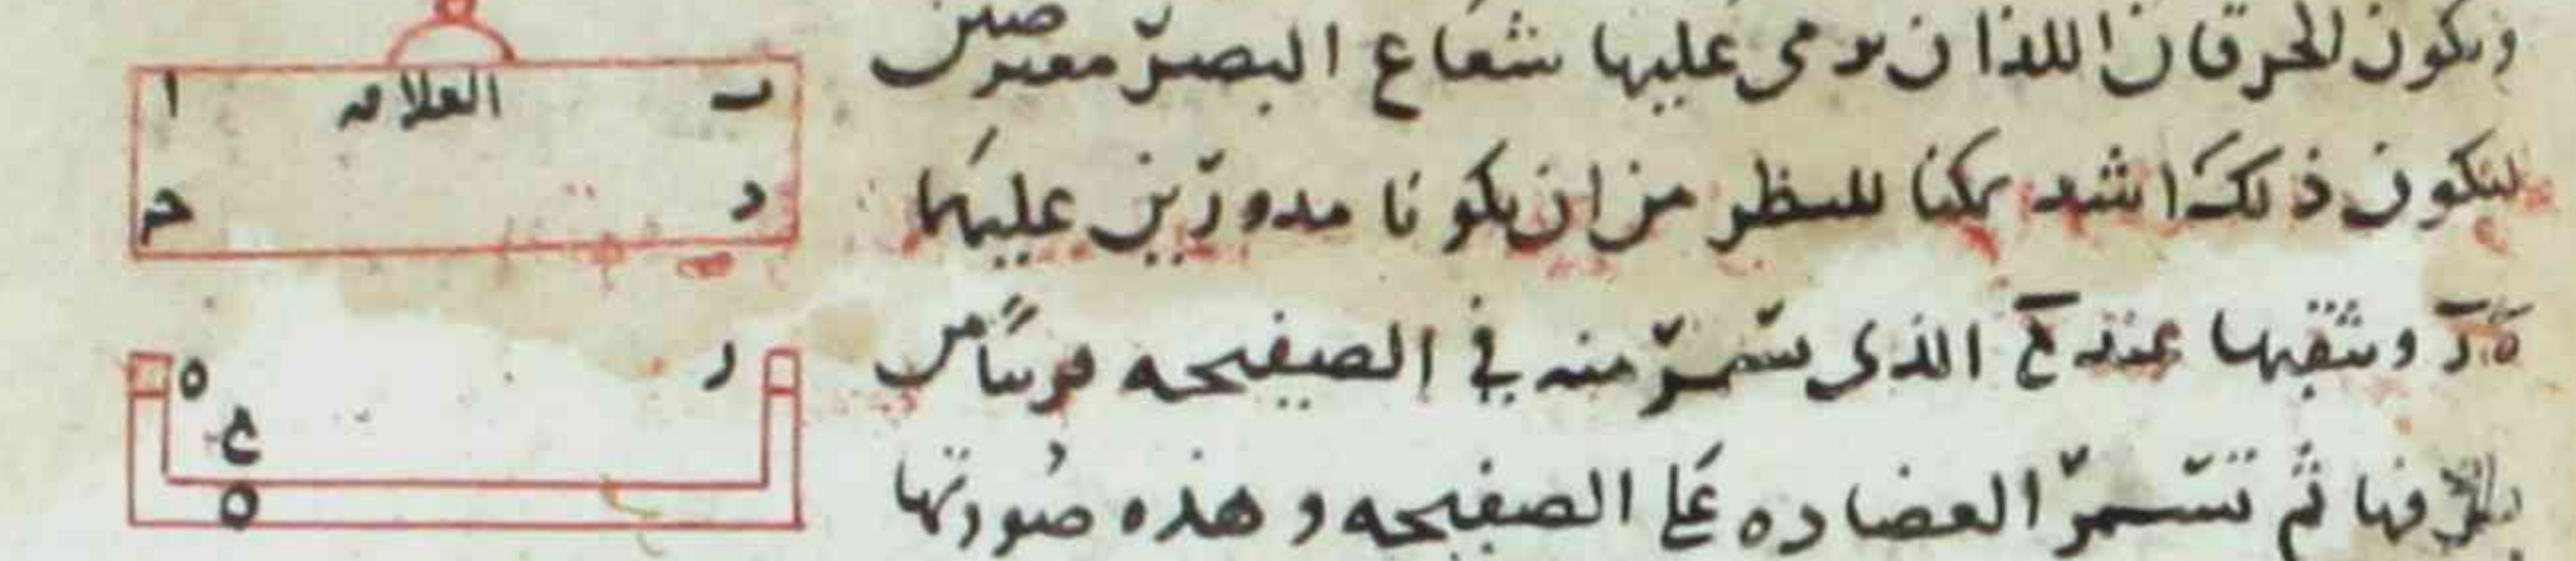 ويكون الخرقان اللذان يرمى عليها شعاع البصر معترضين
ليكون ذلك اشد تمكنا للنظر من ان يكونا مدورين عليهما
ه ر ونثقبها عند ح الذى تسمر منه في الصفيحه قريبا من
طرفها ثم تسمر العضاده على الصفيحه وهذه صورتها
ب العلامه ا
د ح
ر ه
ح